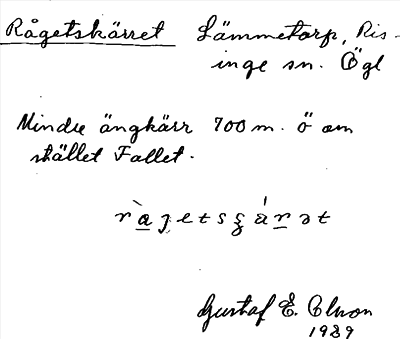 Rågetskärret Lämmetorp, Ris-
inge sn. Ögl
Mindre ängkärr 700 m. ö om
stället Fallet.
Gustaf E. Olsson
1929